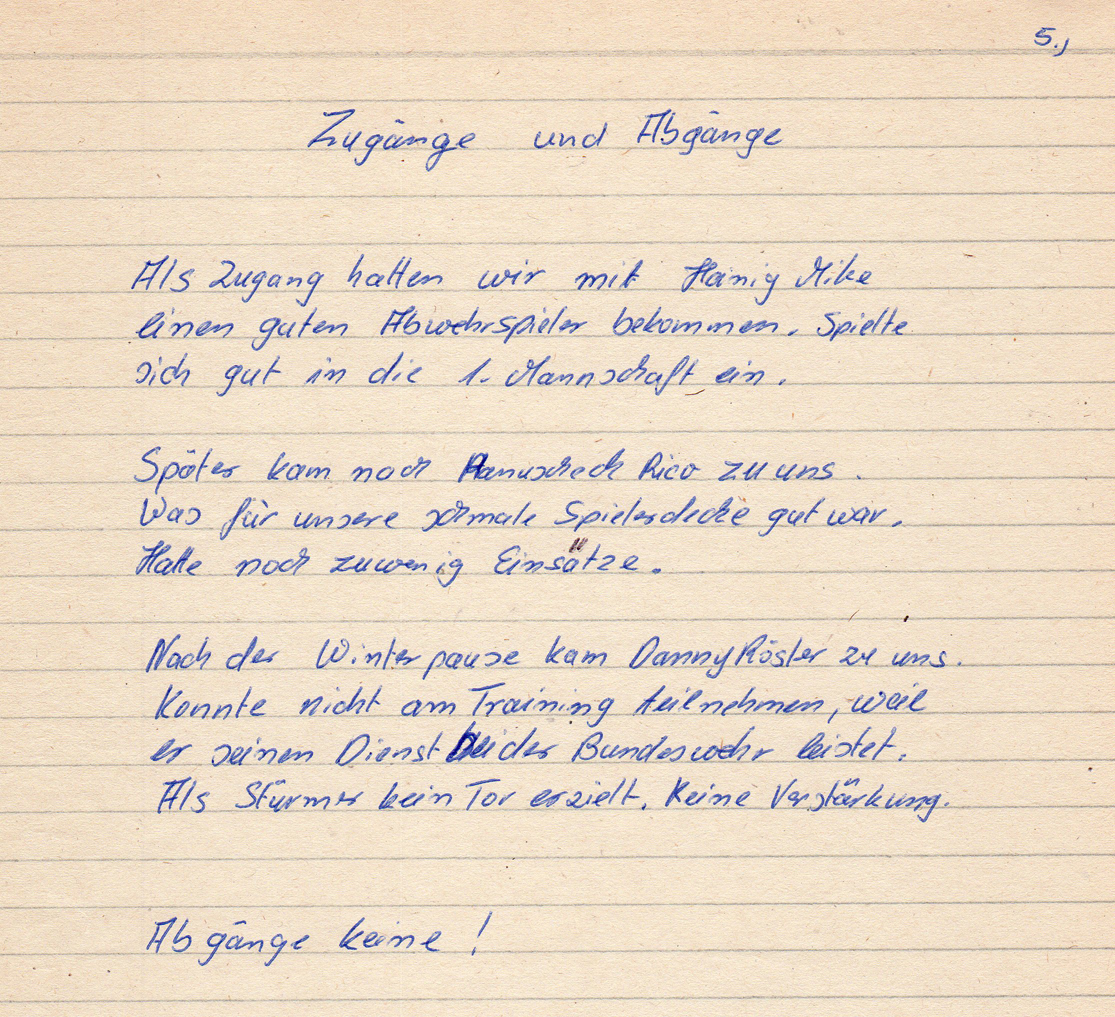 5.,
Zugänge und Abgänge
Als Zugang hatten wir mit Hänig Mike
einen guten Abwehrspieler bekommen. Spielte
sich gut in die 1. Mannschaft ein.
Später kam noch Rico zu uns.
Was für unsere schmale Spielerdecke gut war.
Hatte noch zuwenig Einsätze.
Nach der Winterpause kam Danny Röster zu uns.
Konnte nicht am Training teilnehmen, weil
er seinen Dienst bei der Bundeswehr leistet.
Als Stürmer kein Tor erzielt. Keine Verstärkung.
Abgänge keine!